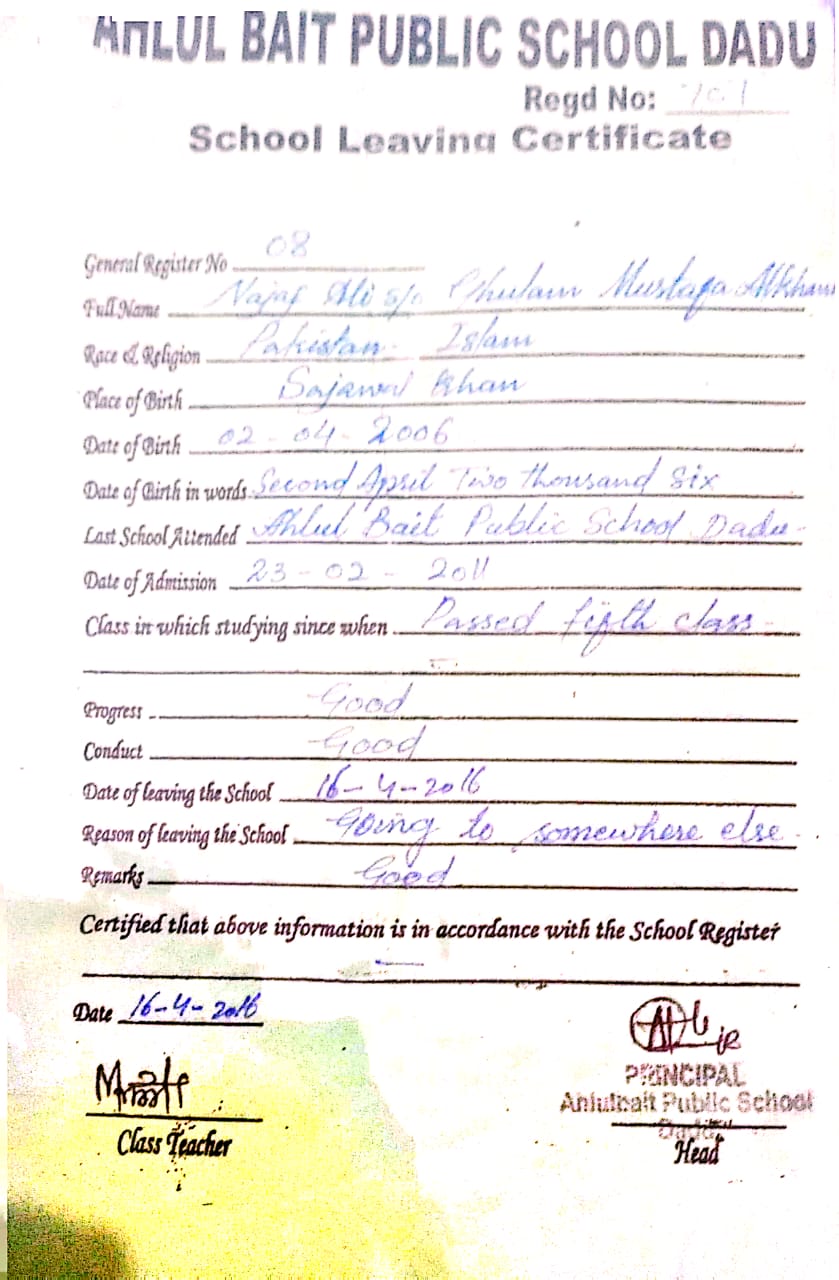 AHLUL BAIT PUBLIC SCHOOL DADU
Regd No: 701
School Leaving Certificate
General Register No 08
Full Name Najaf Ali S/o Ghulam Mustafa
Race & Religion Pakistan - Islam
Place of Birth Sajawal Khan
Date of Birth 02 - 04 - 2006
Date of Birth in words Second April Two thousand Six
Last School Attended Ahlul Bait Public School Dadu -
Date of Admission 23 - 02 - 2011
Class in which studying since when Passed fifth class -
Progress Good
Conduct Good
Date of leaving the School 16 - 4 - 2016
Reason of leaving the School Going to somewhere else -
Remarks Good
Certified that above information is in accordance with the School Register
Date 16-4-2016
PRINCIPAL
Ahlulbait Public School
Dadu
Class Teacher
Head